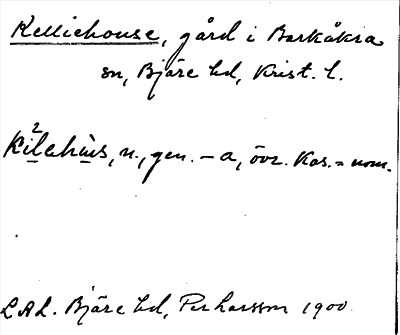 Kelliehouse, gård i Barkåkra
sn, Bjäre hd, Krist. l.
Ki²lahu̇s, n., gen. – a, övr. kas. = nom.
LAL. Bjäre hd, Per Larsson 1900